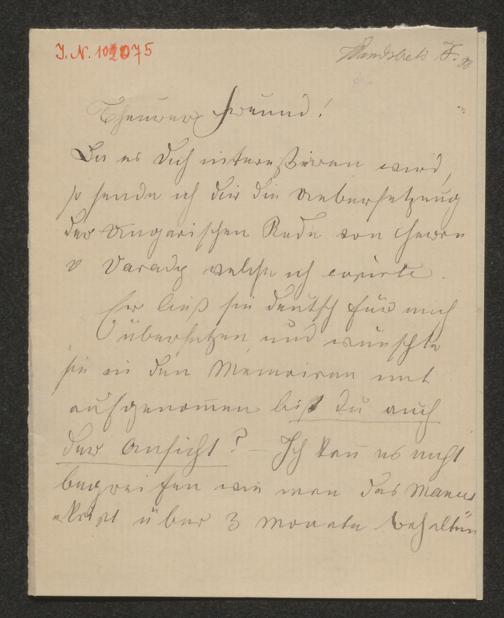 I. N. 102075
Theurer Freund!
Da es Dich interessiren wird,
so sende ich dir die Uebersetzung
der Ungarischen Rede von Herrn
v Varady welche ich copirte.
Er ließ sie deutsch für mich
übersetzen und wünschte
sie in den Memoiren mit
aufgenommen bist Du auch
der Ansicht? – Ich kann es nicht
begreifen wie man das Manus
kript über 3 Monate behalten